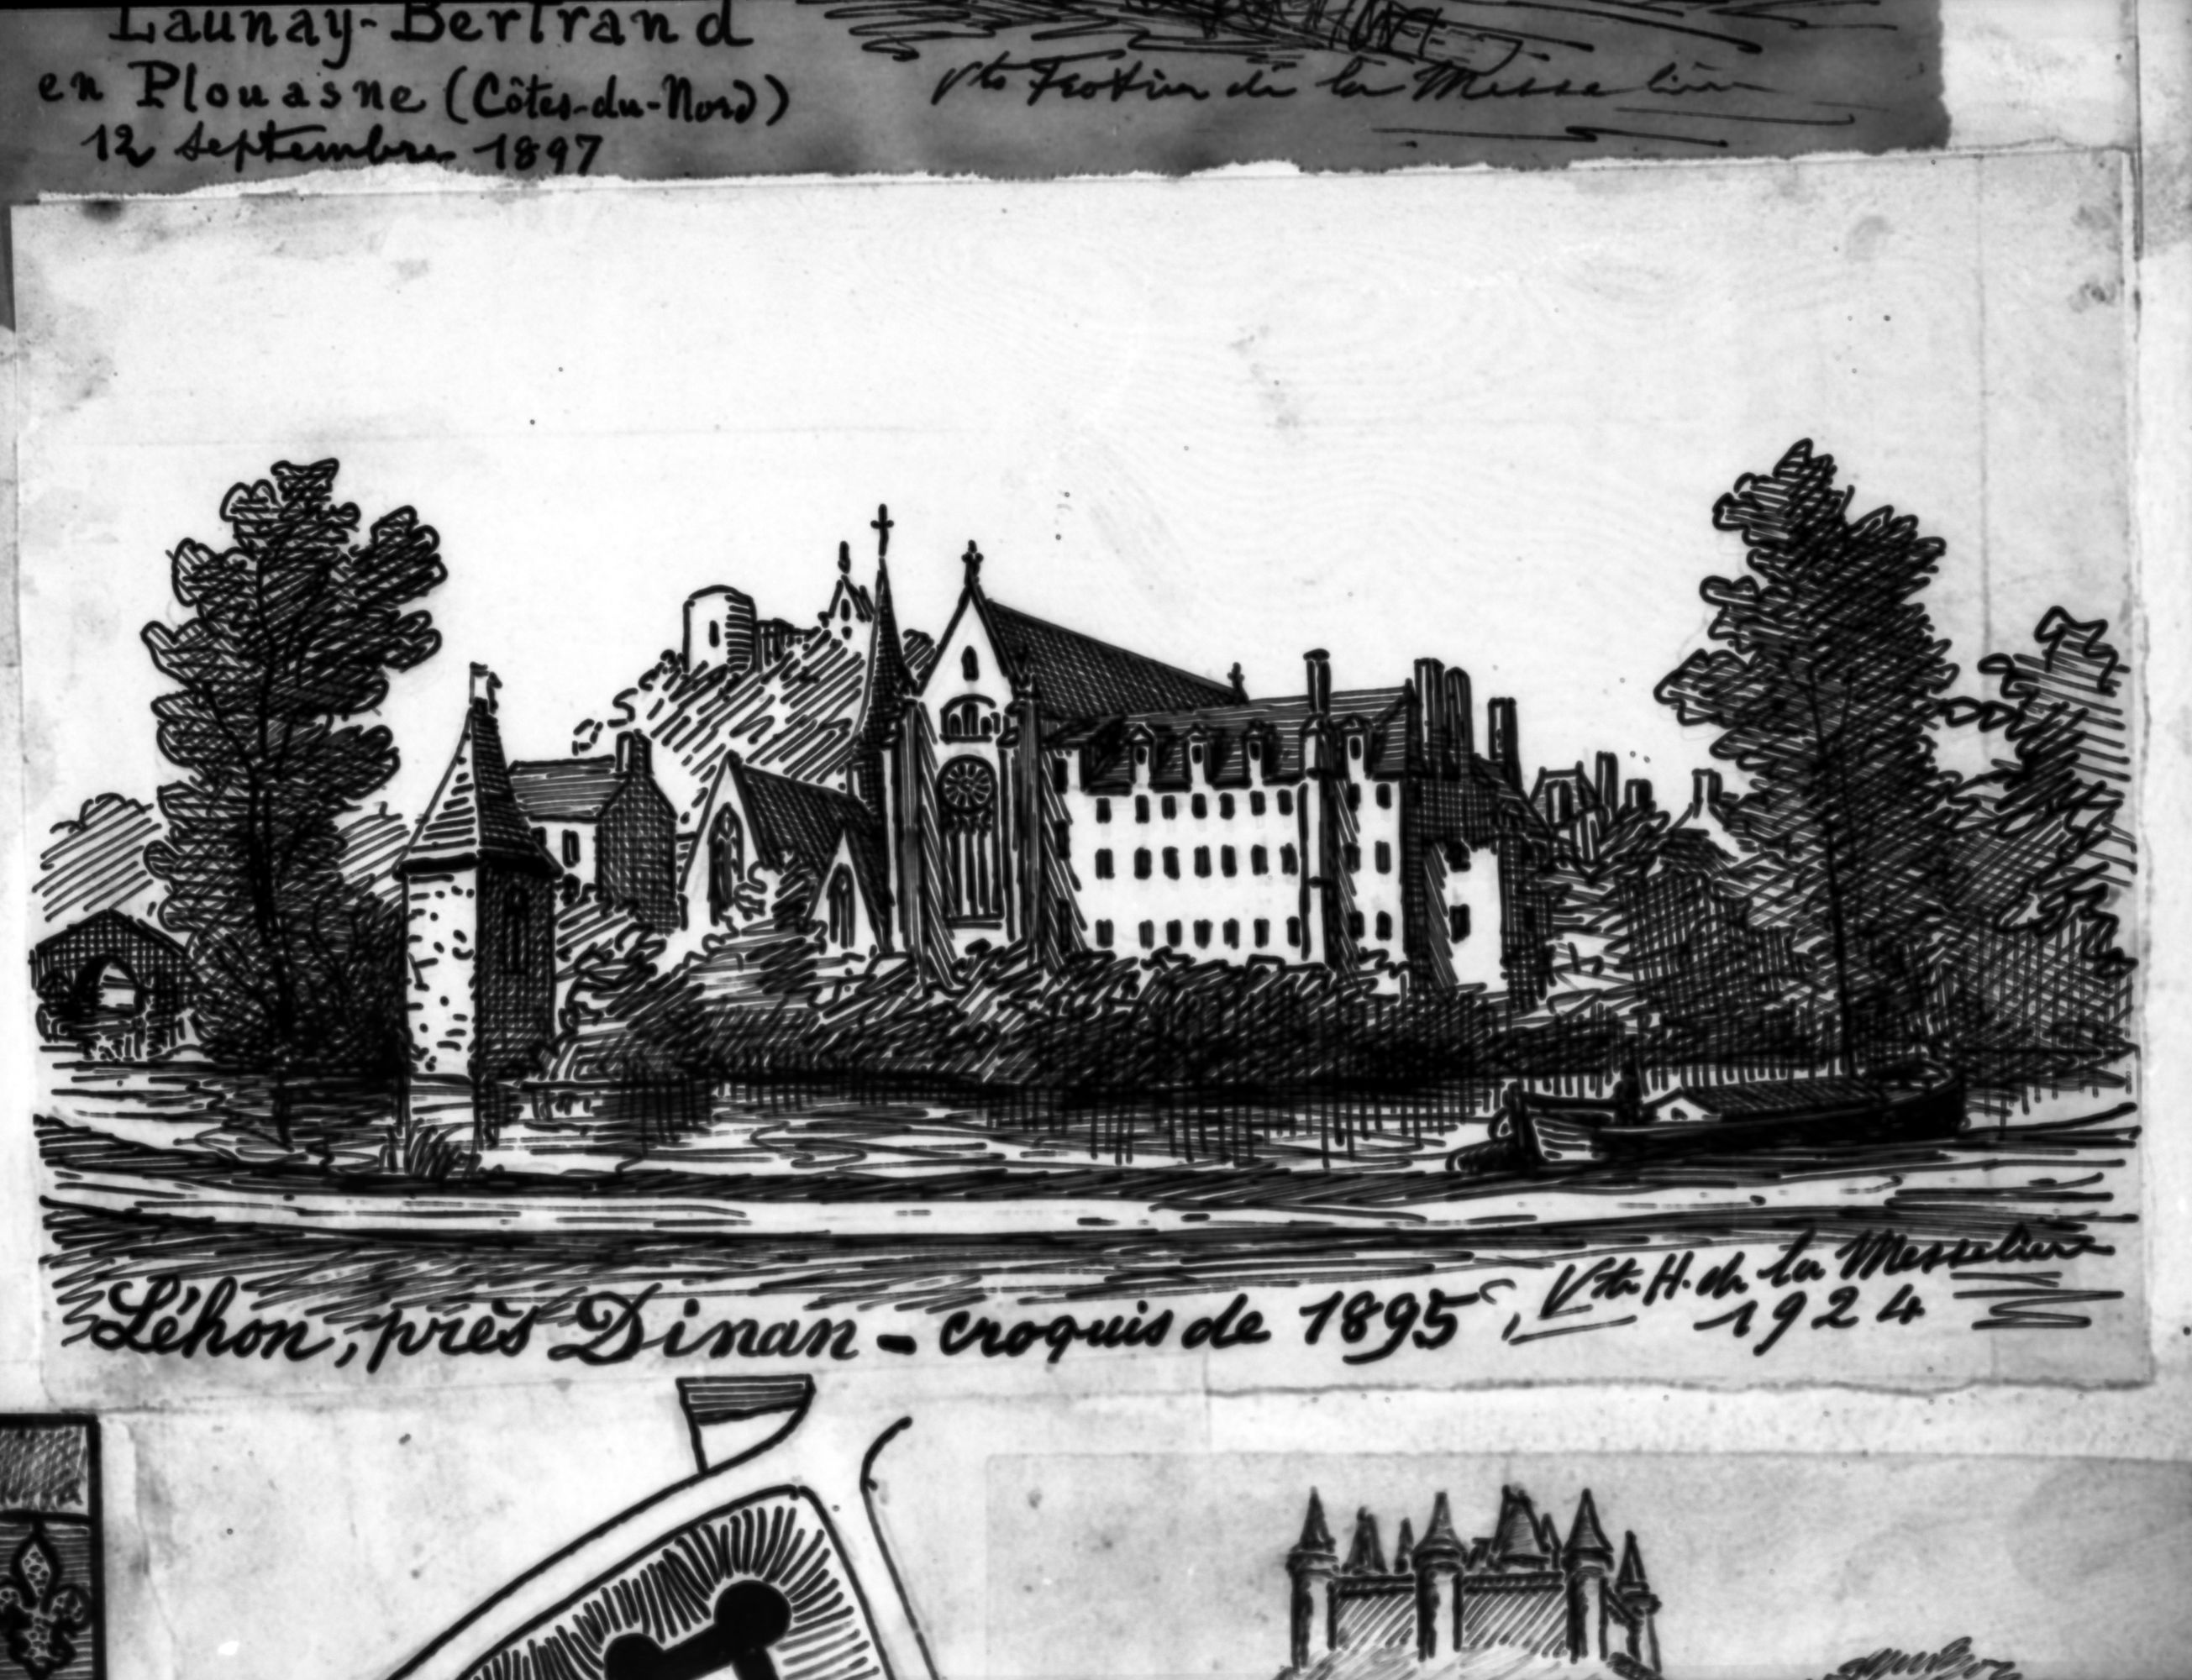 Launay-Bertrand
en Plouasne (Côtes-du-Nord)
12 septembre 1897
Vte Frotier de la Messelière
Léhon, près Dinan - croquis de 1895, Vte H. de la Messelière
1924